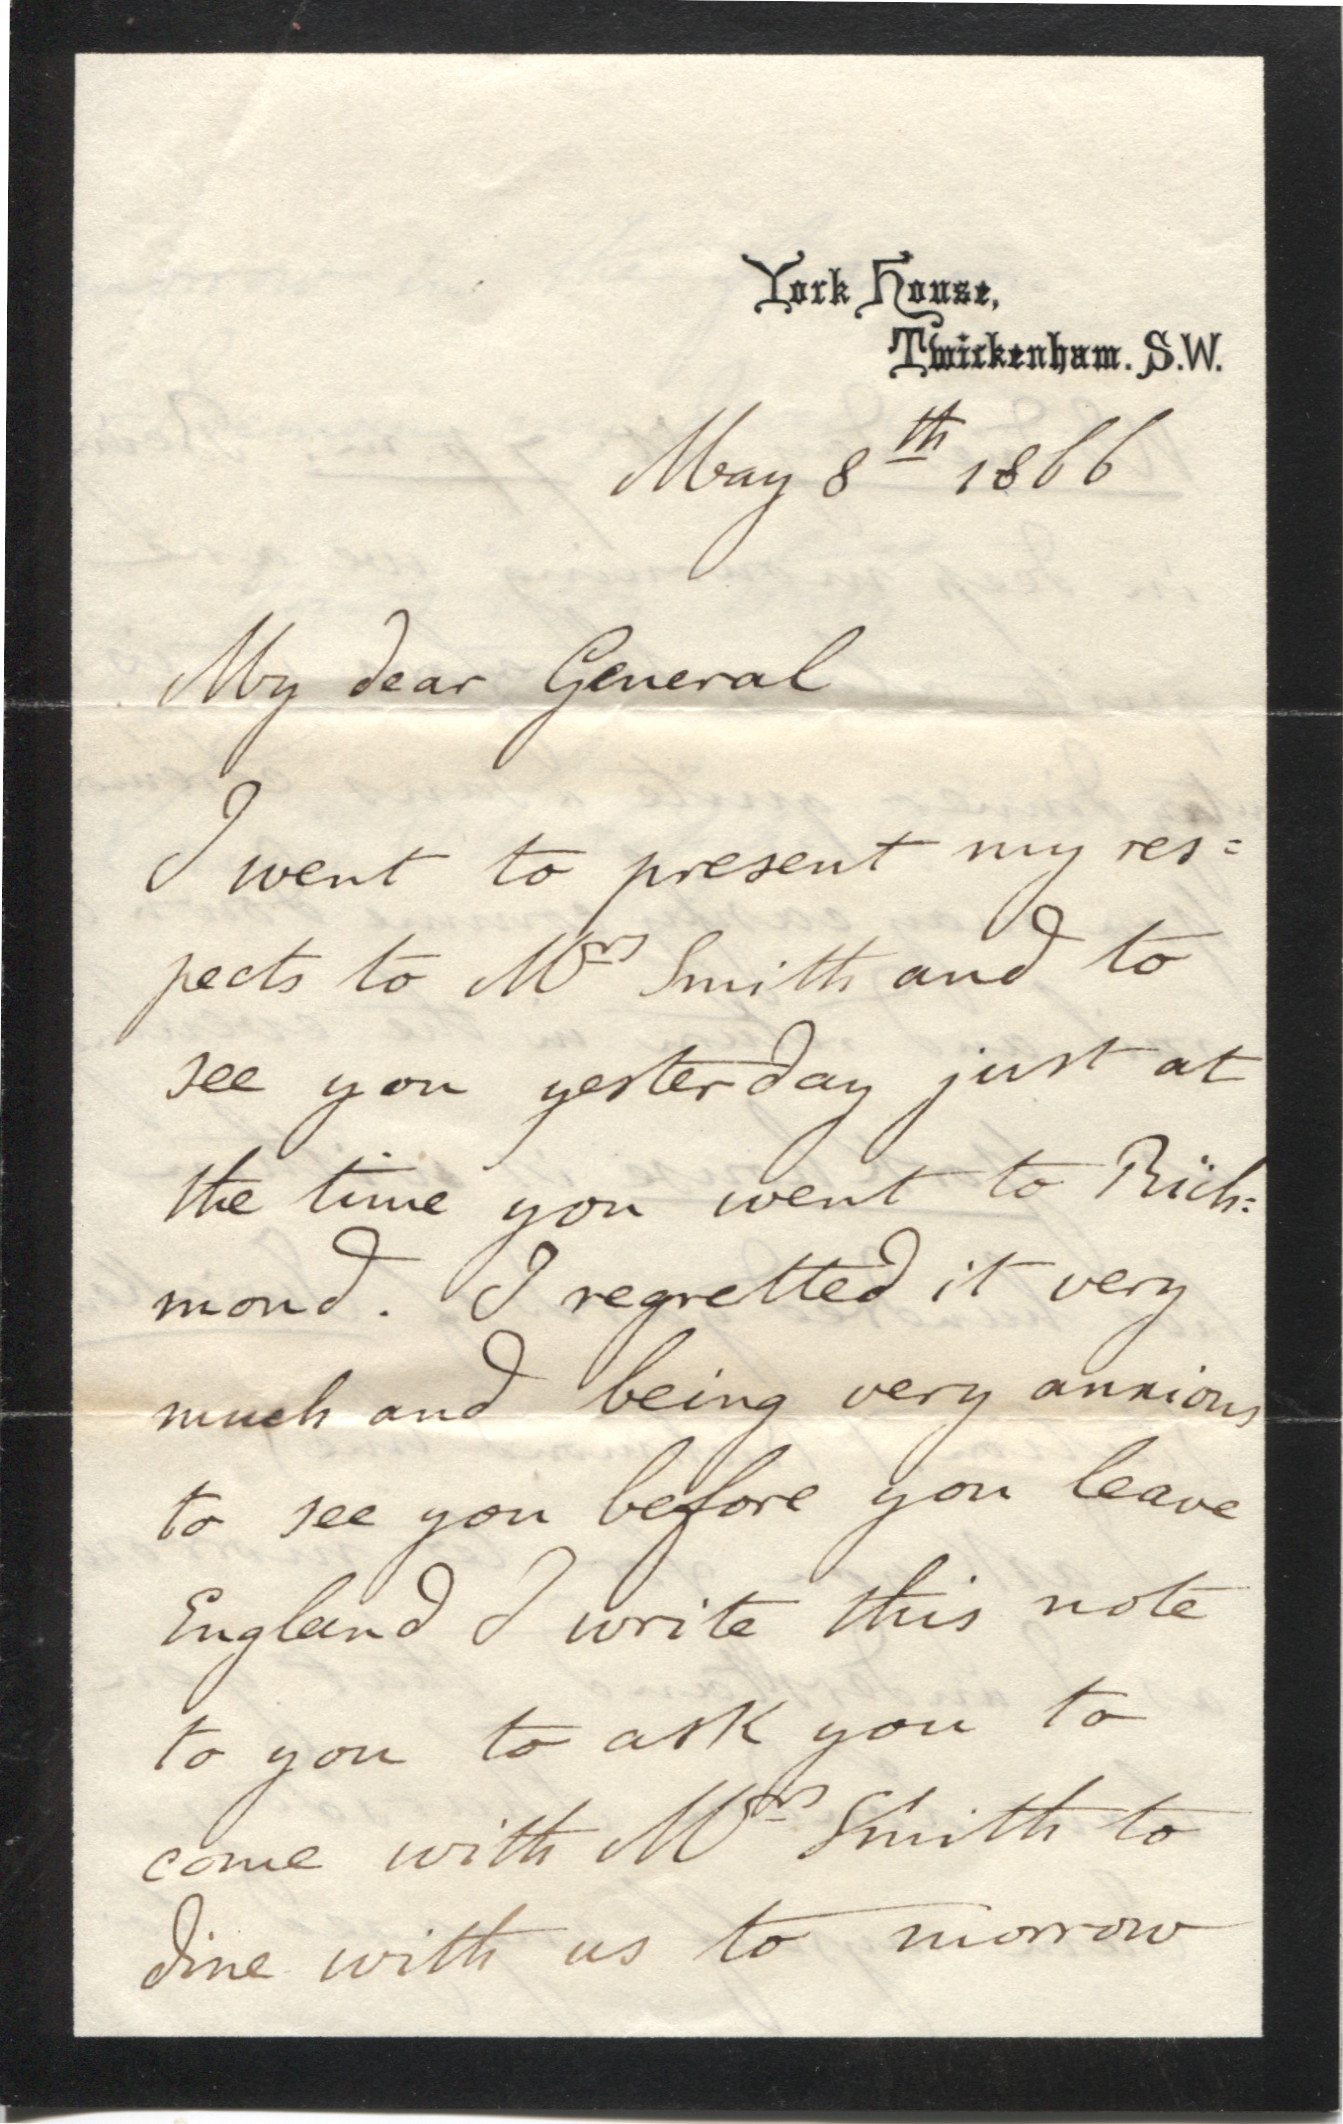 York House,
Twickenham. S.W.
May 8th 1866
My dear General
I went to present my res=
pects to Mrs Smith and to
see you yesterday just at
the time you went to Rich=
mond. I regretted it very
much and being very anxious
to see you before you leave
England I write this note
to you to ask you to
come with Mrs Smith to
dine with us to morrow